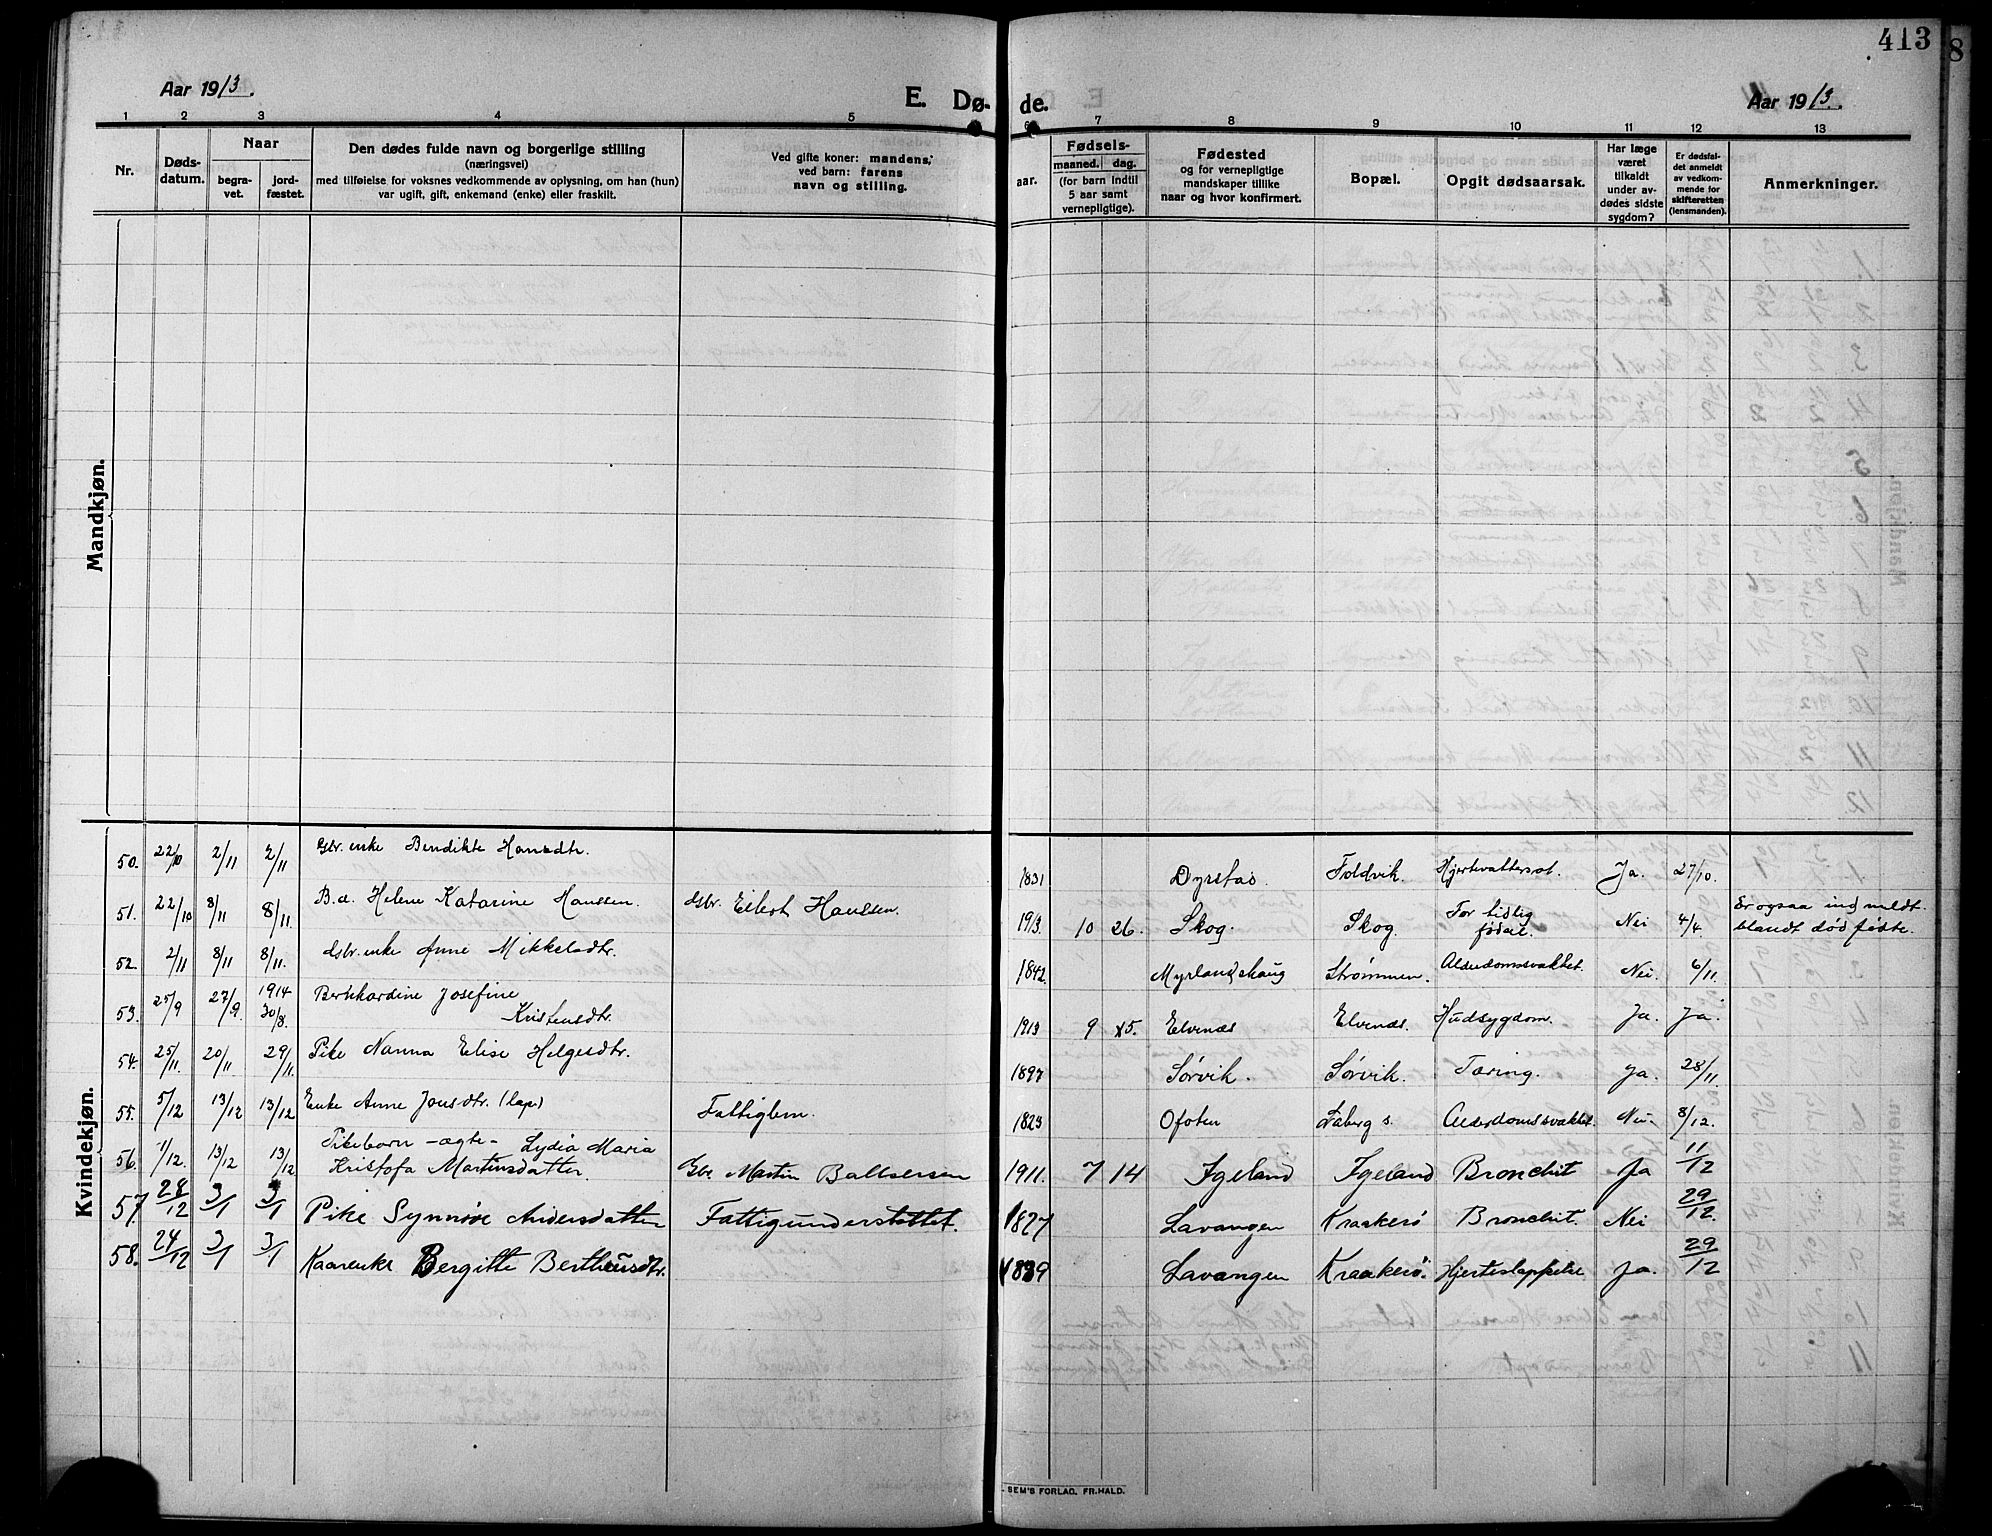 413
8
Aar 1913.
E. Dø-
de.
Aar 1913.
1 2 3 4 5 6 7 8 9 10 11 12 13
Nr.
Døds-
datum.
Naar
begra-
vet.
jord-
fæstet.
Den dødes fulde navn og borgerlige stilling
(næringsvei)
med tilføielse for voksnes vedkommende av oplysning, om han (hun)
var ugift, gift, enkemand (enke) eller fraskilt.
Ved gifte koner: mandens,
ved barn: farens
navn og stilling.
aar.
Fødsels-
maaned. dag.
(for barn indtil
5 aar samt
vernepligtige).
Fødested
og for vernepligtige
mandskaper tillike
naar og hvor konfirmert.
Bopæl.
Opgit dødsaarsak.
Har læge
været
tilkaldt
under av-
dødes sidste
sygdom?
Er dødsfal-
det anmeldt
av vedkom-
mende for
skifteretten
(lensmanden).
Anmerkninger.
Mandkjøn.
Kvindekjøn.
50. 22/10 2/11 2/11 Gbr. enke Bendikte Hansdtr. 1831 Dyrstad. Foldvik. Hjertevattersot. Ja. 27/10.
51. 22/10 8/11 8/11. B. d. Helene Katarine Hanssen. Gbr. Eilert Hanssen. 1913. 10 26. Skog. Skog. For tidlig fødsel. Nei 4/4. Er ogsaa indmeldt
blandt dødfødte.
52. 2/11 8/11 8/11. Gbr. enke Anne Mikkelsdtr. 1842. Myrlandshaug Strømmen. Alderdomssvakhet. Nei. 6/11.
53. 25/9 27/9. 1914 30/8. Bernhardine Josefine
Kristensdtr. 1913 9 15. Elvenæs Elvenæs. Hudsygdom. Ja. Ja
54. 25/11. 20/11 29/11. Pike Nanna Elise Helgesdtr. 1897 Sørvik. Sørvik. Tæring. Ja. 28/11.
55. 5/12 13/12 13/12 Enke Anne Jonsdtr. (lap.) Fattiglem. 1823 Ofoten Faberg s. Alderdomssvakhet. Nei 8/12.
56. 1/12. 13/12 13/12 Pikebarn - ægte - Lydia Maria
Kristofa Martinsdatter. Gbr. Martin Baltsersen 1911. 7 14 Igeland Igeland Bronchit Ja 11/12
57 28/12 3/1 3/1 Pike Synnøve Andersdatter Fattigunderstøttet. 1827 Lavangen Kraakerø Bronchit. Nei 29/12.
58. 24/12 3/1 3/1 Kaarenke Bergitte Bertheusdtr. 1839 Lavangen Kraakerø. Hjerteslappelse Ja. 29/12
SEM'S FORLAG. FR.HALD.